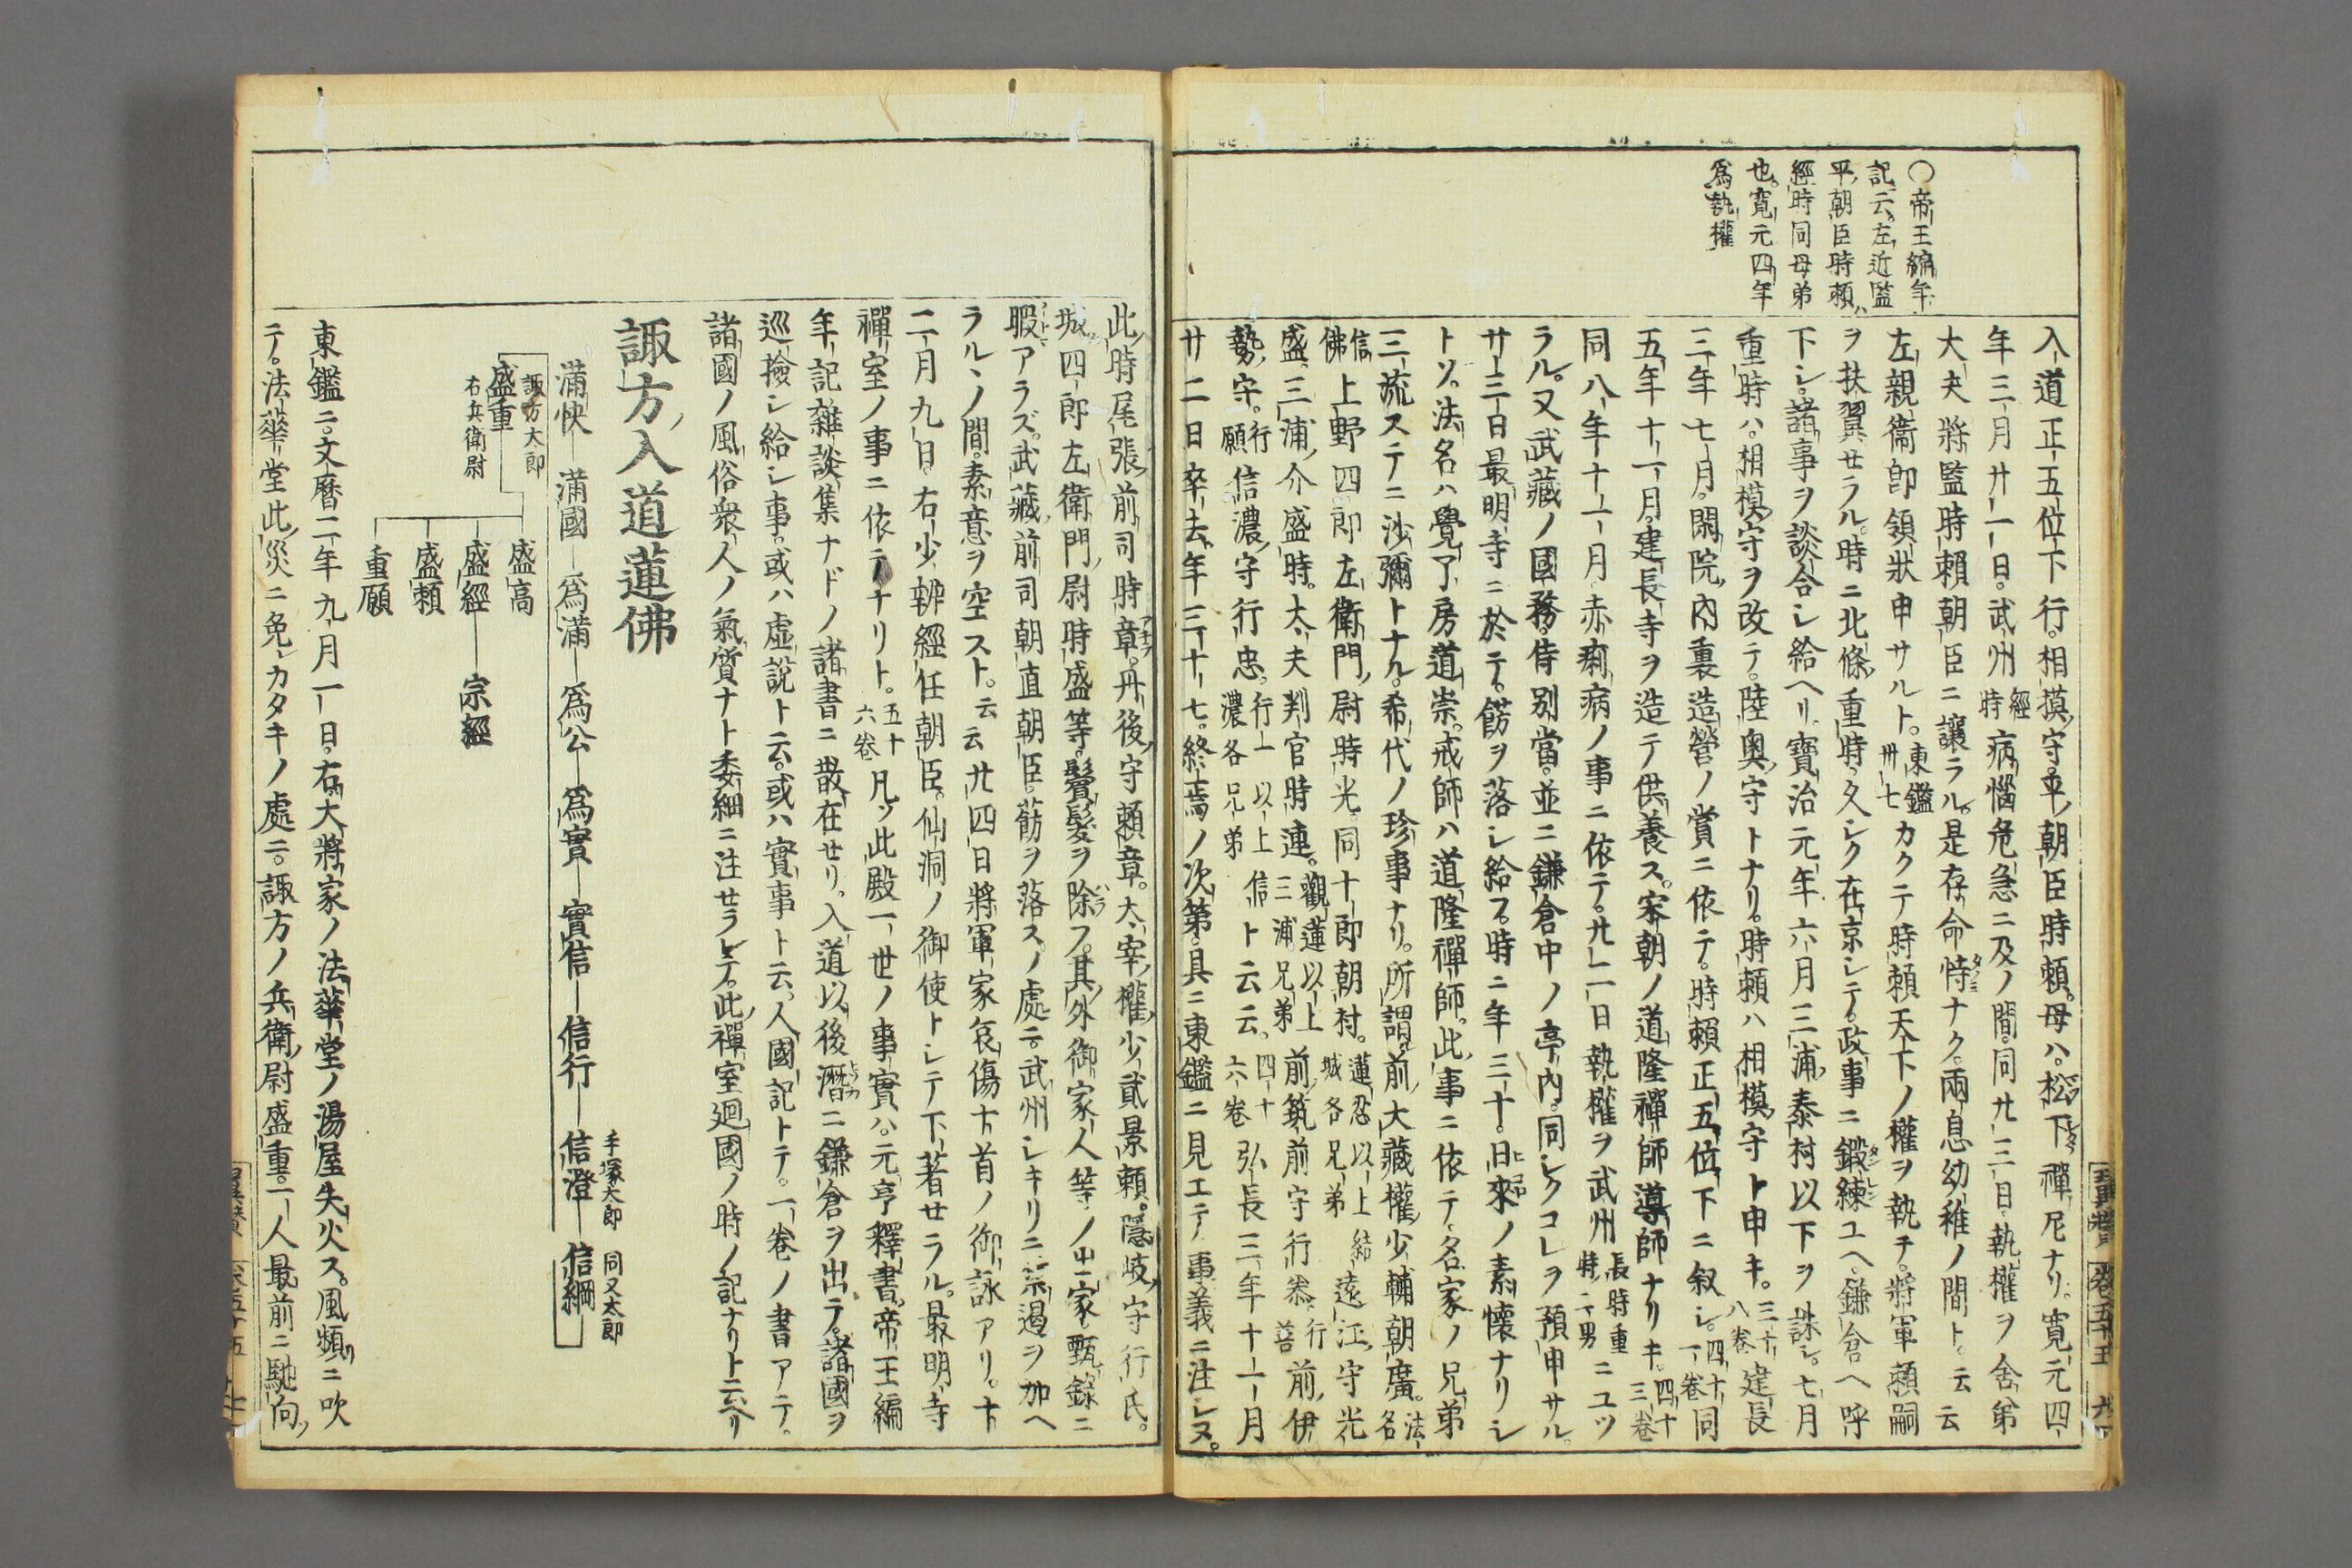 ○帝王編年
記云左近監
平朝臣時頼ハ
經時同母弟
也寛元四年
爲執權
入道正五位下行相摸守平朝臣時頼母ハ松下禪尼ナリ寛元四
年三月廿一日武州經時病惱危急ニ及ノ間同廿三日執權ヲ舍弟
大夫將監時頼朝臣ニ讓ラル是存命恃ナク兩息幼稚ノ間ト云云
左親衞即領狀申サルト東鑑卅七カクテ時頼天下ノ權ヲ執チ將軍頼嗣
ヲ扶翼セラル時ニ北條重時久シク在京シテ政事ニ鍛練ユヘ鎌倉ヘ呼
下シ諸事ヲ談合シ給ヘリ寶治元年六月三浦泰村以下ヲ誅シ七月
重時ハ相模守ヲ改テ陸奥守トナリ時頼ハ相模守ト申キ三十八卷建長
三年七月閑院内裏造營ノ賞ニ依テ時頼正五位下ニ叙シ四十一卷同
五年十一月建長寺ヲ造テ供養ス宋朝ノ道隆禪師導師ナリキ四十三卷
同八年十一月赤痢病ノ事ニ依テ廿二日執權ヲ武州長時重時二男ニユツ
ラル又武藏ノ國務侍別當並ニ鎌倉中ノ亭内同シクコレヲ預申サル
廿三日最明寺ニ於テ餝ヲ落シ給フ時ニ年三十日來ノ素懷ナリシ
トソ法名ハ覺了房道崇戒師ハ道隆禪師此事ニ依テ名家ノ兄弟
三流ステニ沙彌トナル希代ノ珍事ナリ所謂前大藏權少輔朝廣法名
信佛上野四郎左衛門尉時光同十郎朝村蓮忍以上結城各兄弟遠江守光
盛三浦介盛時大夫判官時連觀蓮以上三浦兄弟前筑前守行泰行善前伊
勢守行願信濃守行忠行一以上信濃各兄弟ト云云四十六卷弘長三年十一月
廿二日卒去年三十七終焉ノ次第具ニ東鑑ニ見エテ事義ニ注シヌ
此時尾張前司時章丹後守頼章太宰權少貳景頼隱岐守行氏
城四郎左衛門尉時盛等鬢髮ヲ除フ其外御家人等ノ出家甄錄ニ
暇アラズ武藏前司朝直朝臣餝ヲ落スノ處ニ武州シキリニ禁遏ヲ加ヘ
ラルヽノ間素意ヲ空スト云云廿四日將軍家哀傷十首ノ御詠アリ十
二月九日右少辨經任朝臣仙洞ノ御使トシテ下著セラル最明寺
禪室ノ事ニ依テナリト五十六卷凡ソ此殿一世ノ事實ハ元亨釋書帝王編
年記雜談集ナドノ諸書ニ散在セリ入道以後潛ニ鎌倉ヲ出テ諸國ヲ
巡撿シ給シ事或ハ虚説ト云或ハ實事ト云人國記トテ一卷ノ書アテ
諸國ノ風俗衆人ノ氣質ナト委細ニ注セラレテ此禪室廻國ノ時ノ記ナリト云ヘリ
諏方入道蓮佛
滿快 滿國 爲滿 爲公 爲實 實信 信行 信澄 手塚太郎 信綱 同又太郎
盛重 諏方太郎 右兵衛尉
盛高
盛經 宗經
盛頼
重願
東鑑ニ文暦二年九月一日右大將家ノ法華堂ノ湯屋失火ス風頻ニ吹
テ法華堂此災ニ免レカタキノ處ニ諏方ノ兵衛尉盛重一人最前ニ馳向